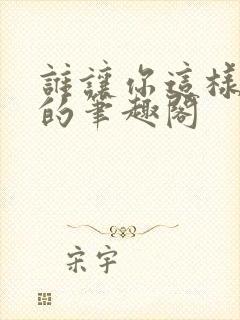 誰讓你這樣
的筆趣閣
宋宇